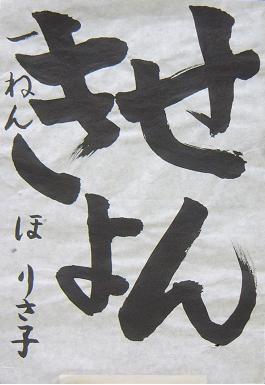 せん
きょ
一ねん ほ りさ子